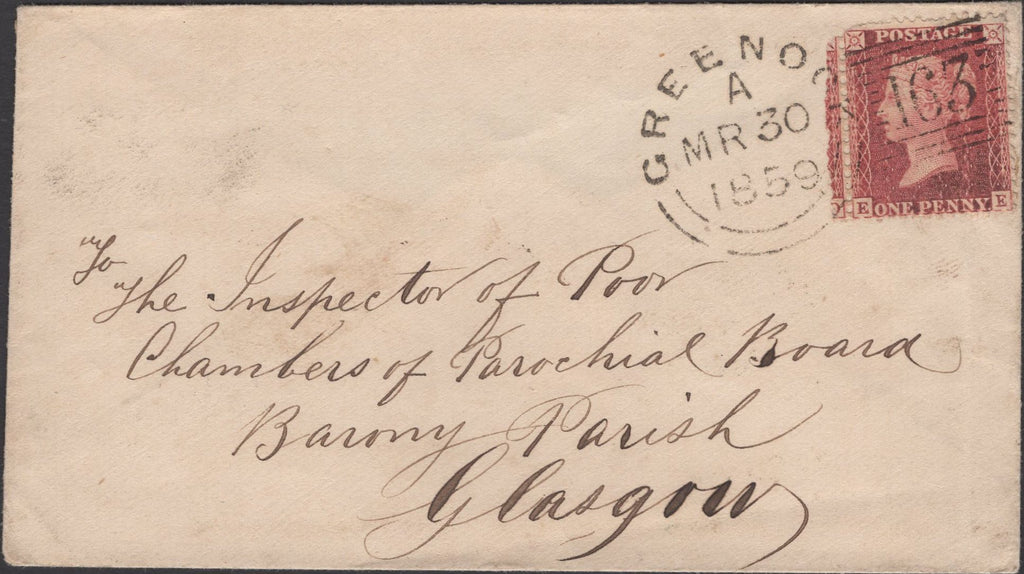 GREENOC
A
MR 30
1859
POSTAGE
163
E ONE PENNY E
To
The Inspector of Poor
Chambers of Parochial Board
Barony Parish
Glasgow